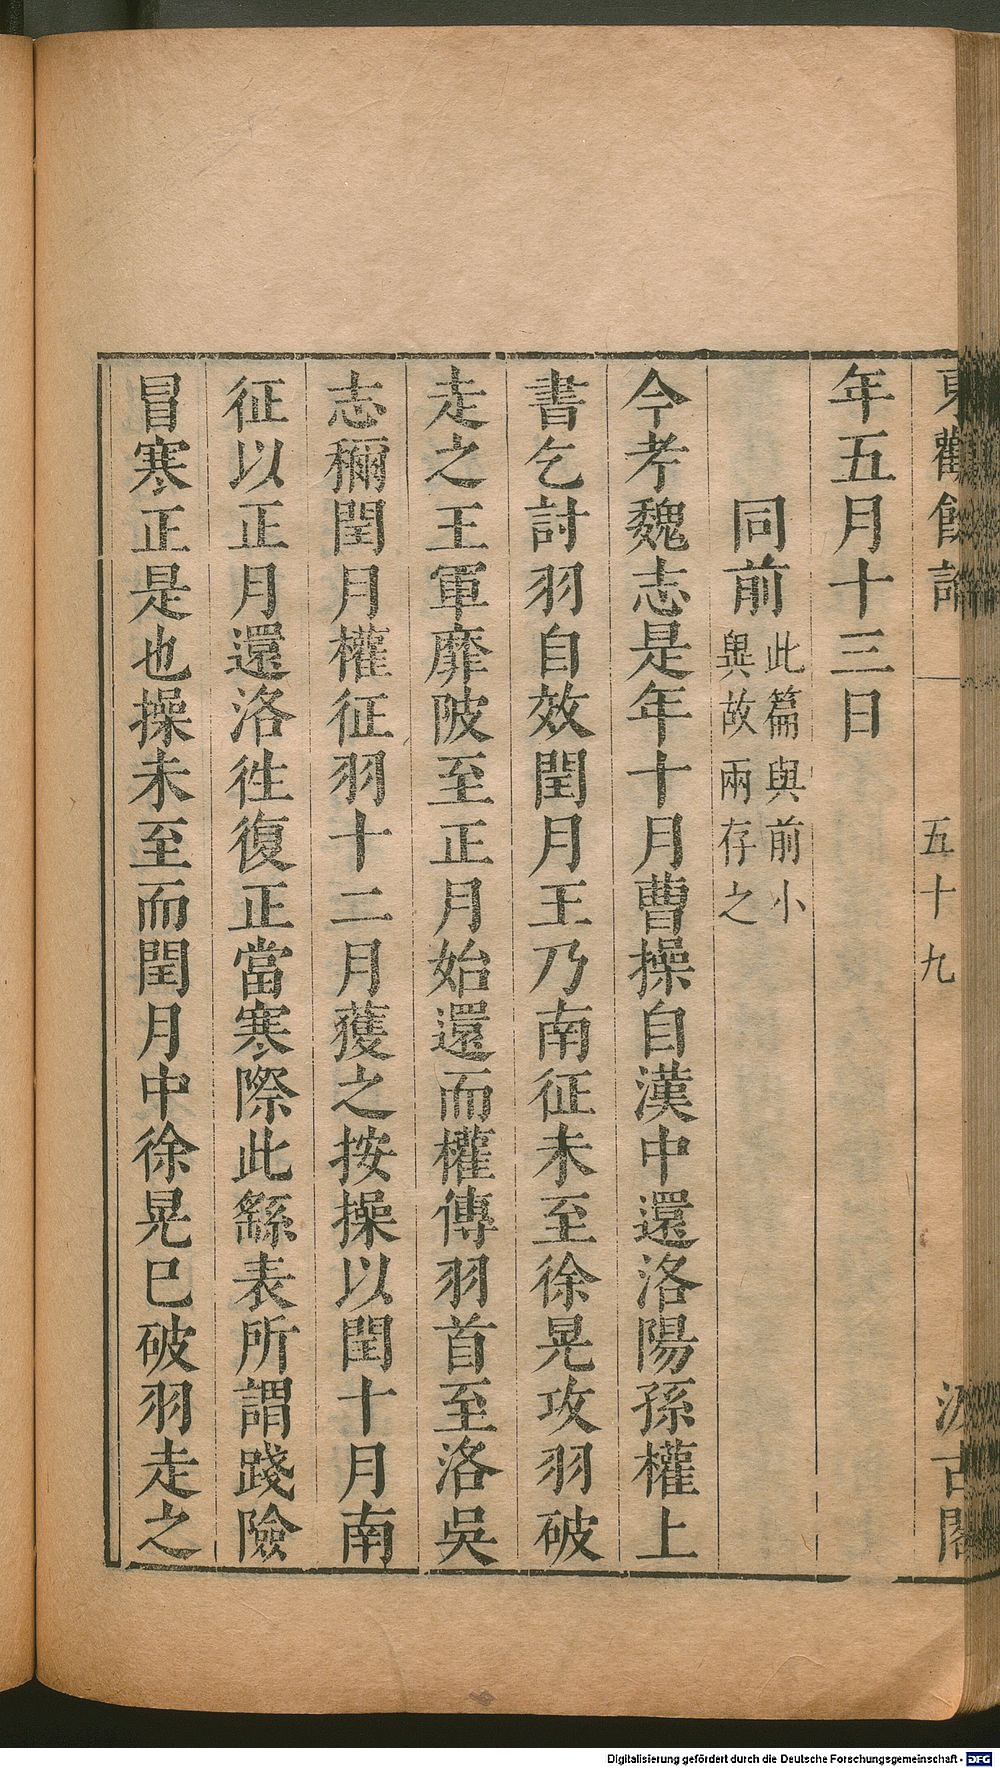 東觀餘論 五十九 汲古閣
年五月十三日
同前 此篇與前小
異故兩存之
今考魏志是年十月曹操自漢中還洛陽孫權上
書乞討羽自效閏月王乃南征未至徐晃攻羽破
走之王軍靡陂至正月始還而權傳羽首至洛吳
志稱閏月權征羽十二月獲之按操以閏十月南
征以正月還洛徃復正當寒際此繇表所謂踐險
冒寒正是也操未至而閏月中徐晃巳破羽走之
Digitalisierung gefördert durch die Deutsche Forschungsgemeinschaft - DFG